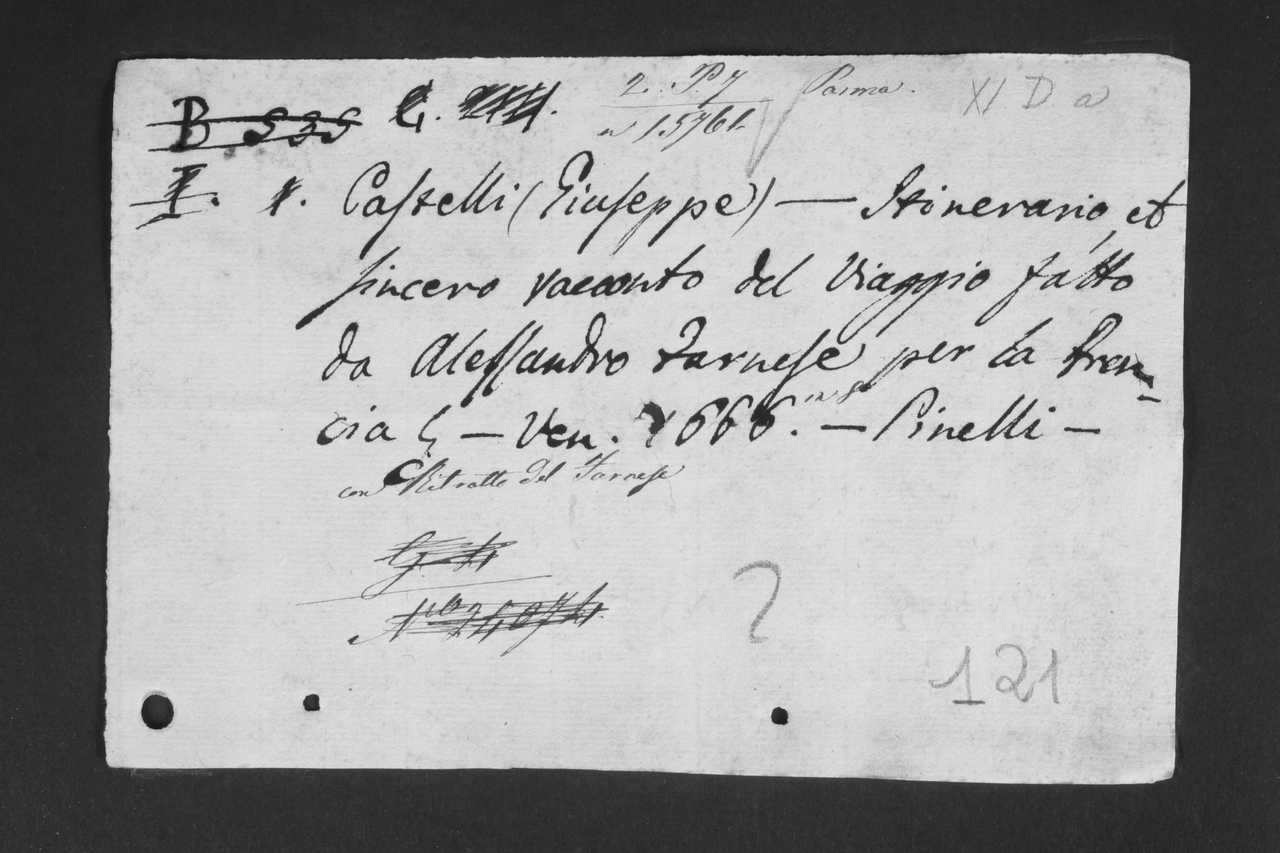 2. P. 7 Parma. XI D a
B 535
n 15761.
Castelli (Giuseppe) — Itinerario, et
sincero racconto del Viaggio fatto
da Alessandro Farnese per la Fran-
cia — Ven. 1666. in 8 — Pinelli —
con Ritratto del Farnese
121